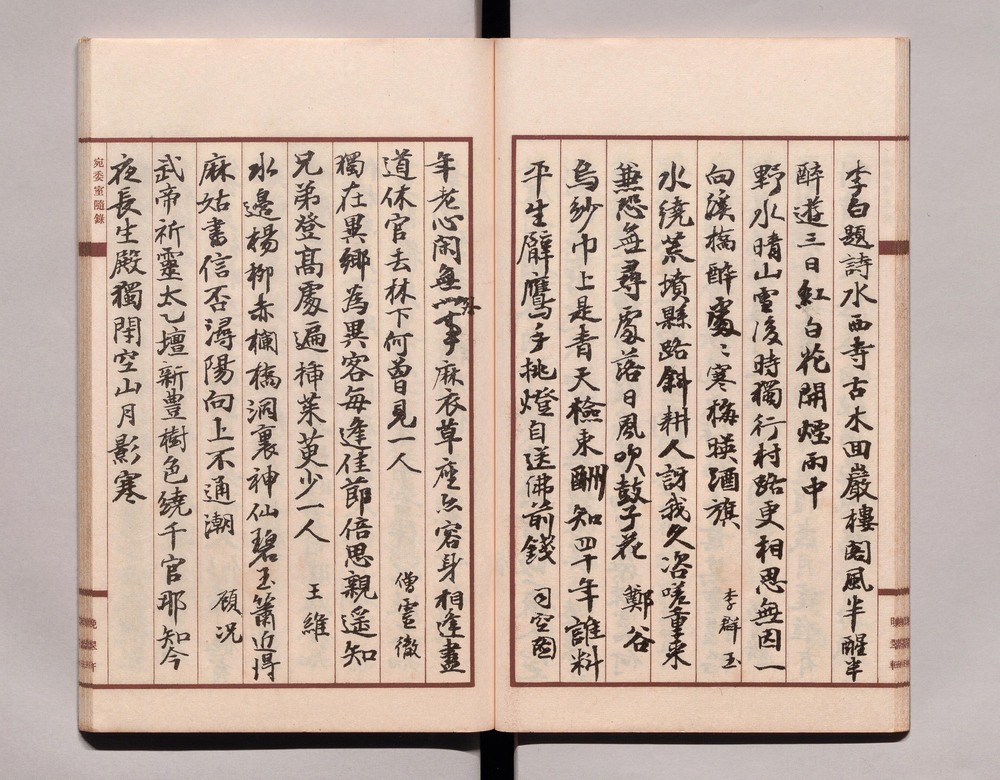 李白題詩水西寺古木回巖樓閣風半醒半
醉遊三日紅白花開煙雨中
野水晴山雪後時獨行村路更相思無因一
向溪橋醉處處寒梅暎酒旗 李群玉
水繞荒墳縣路斜耕人訝我久咨嗟重來
兼恐無尋處落日風吹鼓子花 鄭谷
烏紗巾上是青天檢束酬知四十年誰料
平生臂鷹手挑燈自送佛前錢 司空圖
年老心閑無外事麻衣草座亦容身相逢盡
道休官去林下何曾見一人 僧靈徹
獨在異鄉為異客每逢佳節倍思親遥知
兄弟登高處遍插茱萸少一人 王維
水邊楊柳赤欄橋洞裏神仙碧玉簫近得
麻姑書信否潯陽向上不通潮 顧況
武帝祈靈太乙壇新豊樹色繞千官那知今
夜長生殿獨閉空山月影寒
宛委室隨錄